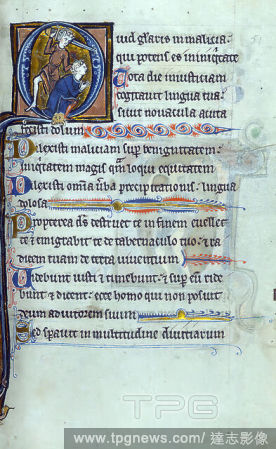 Quid gloriaris in malicia
qui potens es in iniquitate
Tota die iniusticiam
cogitauit lingua tua
sicut nouacula acuta
fecisti dolum
Dilexisti maliciam sup benignitatem
iniquitatem magis qm loqui equitatem
Dilexisti omia uba precipitationis lingua
dolosa
Propterea ds destruet te in finem euellet
te et emigrabit te de tabernaculo tuo et ra
dicem tuam de terra uiuentium
Uidebunt iusti et timebunt et sup eu ride
bunt et dicent ecce homo qui non posuit
deum adiutorem suum
Sed sperauit in multitudine diuitiarum
TPG
www.tpgnews.com/ 達志影像